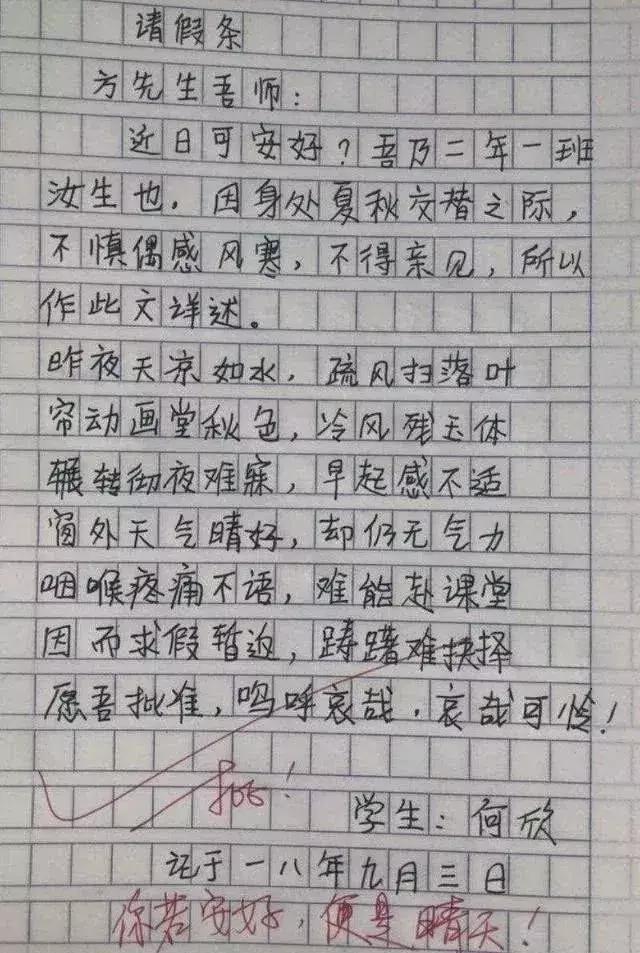 请假条
方先生吾师：
近日可安好？吾乃二年一班
汝生也．因身处夏秋交替之际，
不慎偶感风寒，不得亲见，所以
作此文详述。
昨夜天凉如水．疏风扫落叶
帘动画堂秋色，冷风残玉体
辗转彻夜难寐，早起感不适
窗外天气晴好，却仍无气力
咽喉疼痛不语，难能赴课堂
因而求假暂返，踌躇难抉择
愿吾批准，呜呼哀哉．哀哉可怜！
批！
学生：何欣
记于一八年九月三日
你若安好，便是晴天！